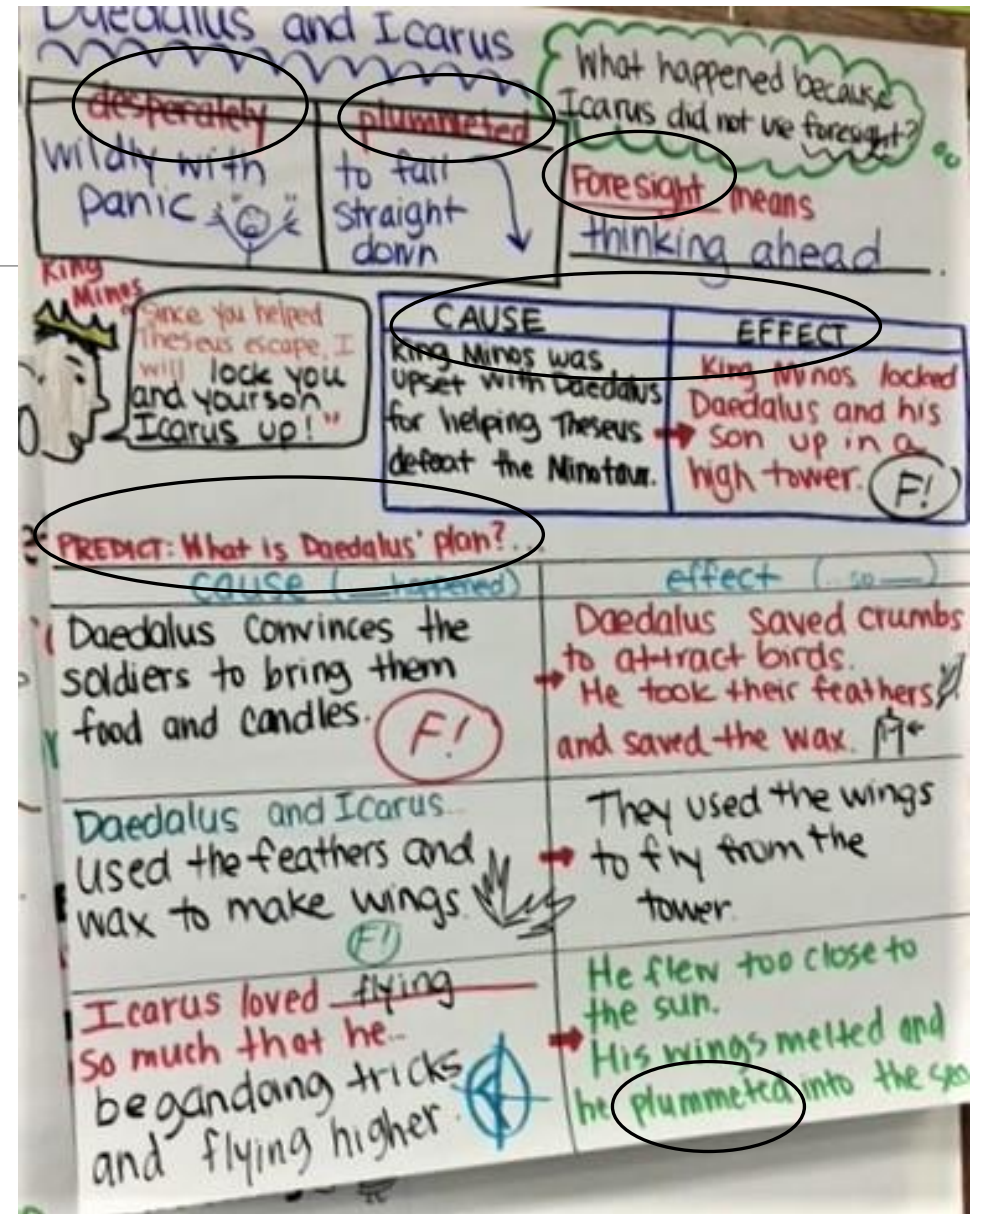 Daedalus and Icarus
What happened because
Icarus did not use foresight?
desperately
wildly with
panic
plummeted
to fall
straight
down
Foresight means
thinking ahead.
King
Minos
"Since you helped
Theseus escape, I
will lock you
and your son
Icarus up!"
CAUSE
King Minos was
upset with Daedalus
for helping Theseus
defeat the Minotaur.
EFFECT
King Minos locked
Daedalus and his
son up in a
high tower.
F!
PREDICT: What is Daedalus' plan?...
cause (__happened)
effect (..so__)
Daedalus convinces the
soldiers to bring them
food and candles.
F!
Daedalus saved crumbs
to attract birds.
He took their feathers
and saved the wax.
Daedalus and Icarus...
used the feathers and
wax to make wings.
F!
They used the wings
to fly from the
tower.
Icarus loved flying
so much that he...
began doing tricks
and flying higher.
He flew too close to
the sun.
His wings melted and
he plummeted into the sea